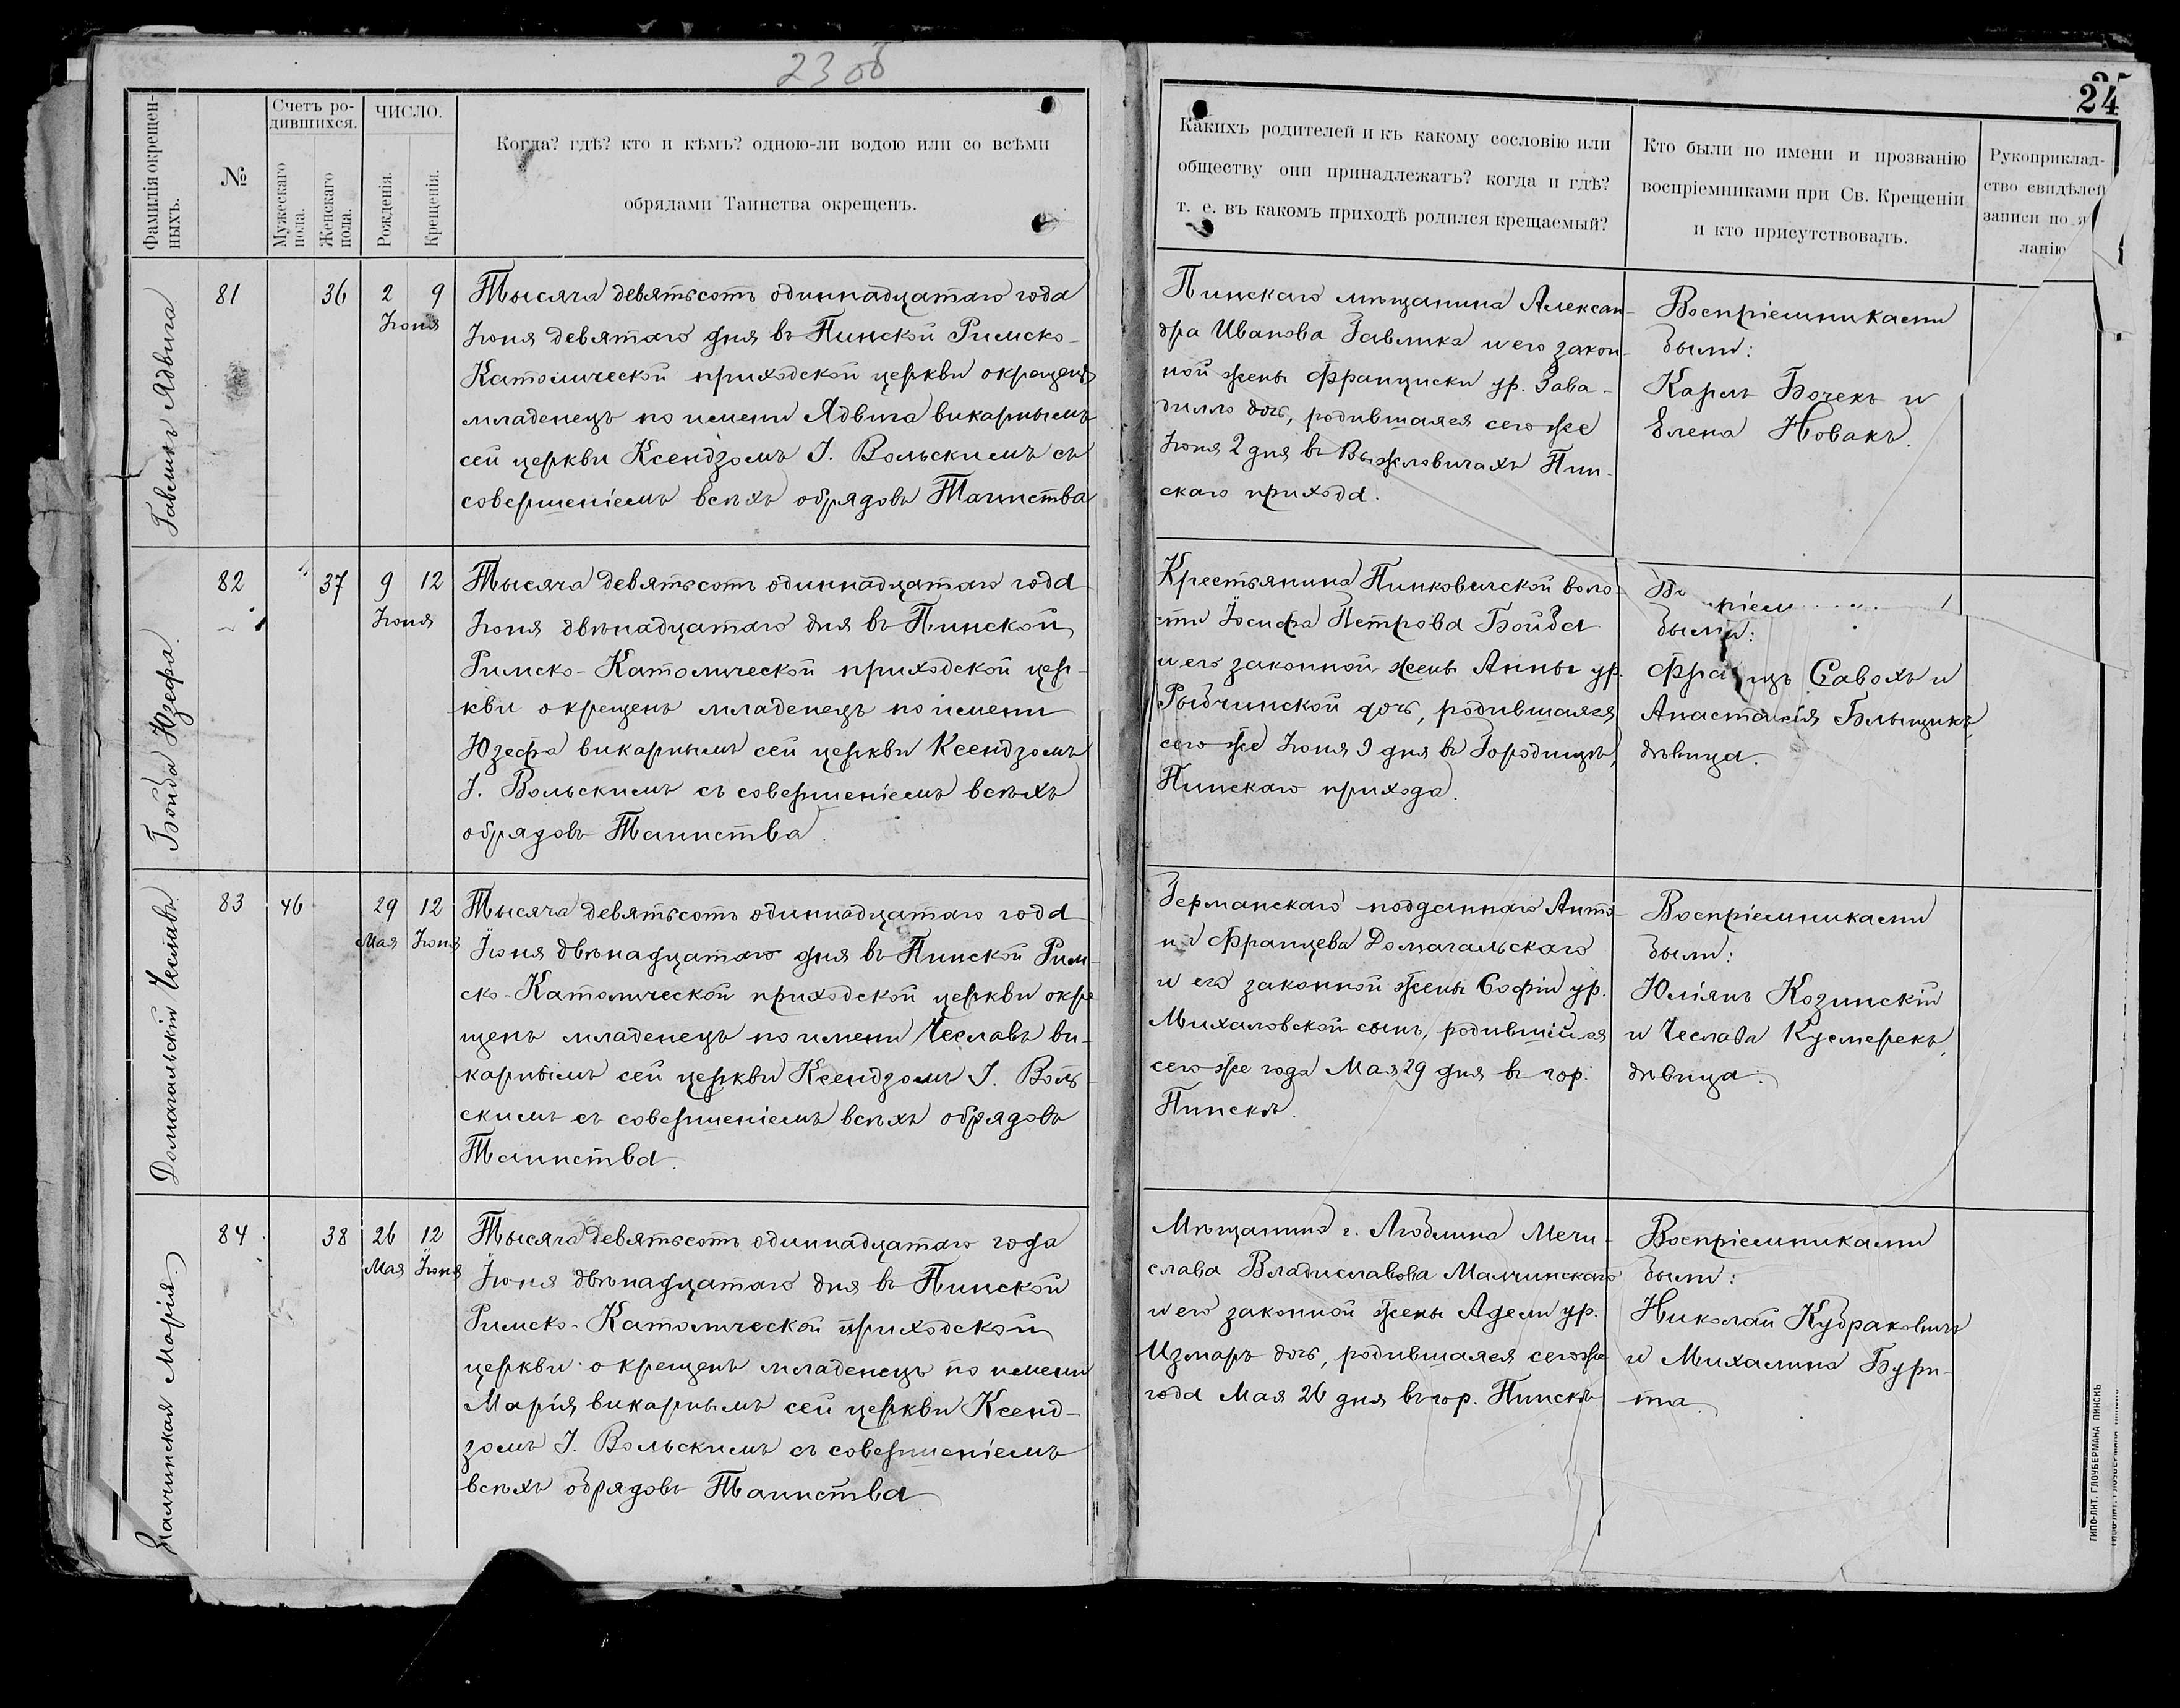 23 об
24
Фамилія окрещен-
ныхъ.
№
Счетъ ро-
дившихся.
Мужескаго
пола.
Женскаго
пола.
ЧИСЛО.
Рожденія.
Крещенія.
Когда? гдѣ? кто и кѣмъ? одною-ли водою или со всѣми
обрядами Таинства окрещенъ.
Какихъ родителей и къ какому сословію или
обществу они принадлежатъ? когда и гдѣ?
т. е. въ какомъ приходѣ родился крещаемый?
Кто были по имени и прозванію
воспріемниками при Св. Крещеніи
и кто присутствовалъ.
Рукоприклад-
ство свидѣлей
записи по
ланію
Гавликъ Ядвига
81
36
2 9
Іюня
Тысяча девятьсотъ одиннадцатаго года
Іюня девятаго дня въ Пинской Римско-
Католической приходской церкви окрещенъ
младенецъ по имени Ядвига викарнымъ
сей церкви Ксендзомъ І. Вольскимъ съ
совершеніемъ всѣхъ обрядовъ Таинства
Пинскаго мѣщанина Алексан-
дра Иванова Гавлика и его закон-
ной жены Франциски ур. Зава-
дилло дочь, родившаяся сего же
Іюня 2 дня въ Выжловичахъ Пин-
скаго прихода.
Воспріемниками
были:
Карлъ Бочекъ и
Елена Новакъ.
Бойда Юзефа
82
37
9 12
Іюня
Тысяча девятьсотъ одиннадцатаго года
Іюня двѣнадцатаго дня въ Пинской
Римско-Католической приходской цер-
кви окрещенъ младенецъ по имени
Юзефа викарнымъ сей церкви Ксендзомъ
І. Вольскимъ съ совершеніемъ всѣхъ
обрядовъ Таинства.
Крестьянина Пинковичской воло-
сти Іосифа Петрова Бойда
и его законной жены Анны ур.
Рыдчинской дочь, родившаяся
сего же Іюня 9 дня въ Городищѣ,
Пинскаго прихода.
были:
Савохъ и
Анастасія Блыщикъ,
дѣвица.
Домагальскій Чеславъ
83
46
29 12
Мая Іюня
Тысяча девятьсотъ одиннадцатаго года
Іюня двѣнадцатаго дня въ Пинской Рим-
ско-Католической приходской церкви окре
щенъ младенецъ по имени Чеславъ ви-
карнымъ сей церкви Ксендзомъ І. Воль-
скимъ съ совершеніемъ всѣхъ обрядовъ
Таинства.
Германскаго подданнаго Анто-
на Францева Домагальскаго
и его законной жены Софіи ур.
Михаловской сынъ, родившійся
сего же года Мая 29 дня въ гор.
Пинскѣ.
Воспріемниками
были:
Юліянъ Козинскій
и Чеслава Кусмерекъ,
дѣвица.
Малчинская Марія.
84
38
26 12
Мая Іюня
Тысяча девятьсотъ одиннадцатаго года
Іюня двѣнадцатаго дня въ Пинской
Римско-Католической приходской
церкви окрещенъ младенецъ по имени
Марія викарнымъ сей церкви Ксенд-
зомъ І. Вольскимъ съ совершеніемъ
всѣхъ обрядовъ Таинства
Мѣщанина г. Люблина Мечи-
слава Владиславова Малчинскаго
и его законной жены Адели ур.
Измаръ дочь, родившаяся сего же
года Мая 26 дня въ гор. Пинскѣ
Воспріемниками
были:
Николай Кудраковичъ
и Михалина Бури-
та.
ТИПО-ЛИТ. ГЛОУБЕРМАНА ПИНСКЪ